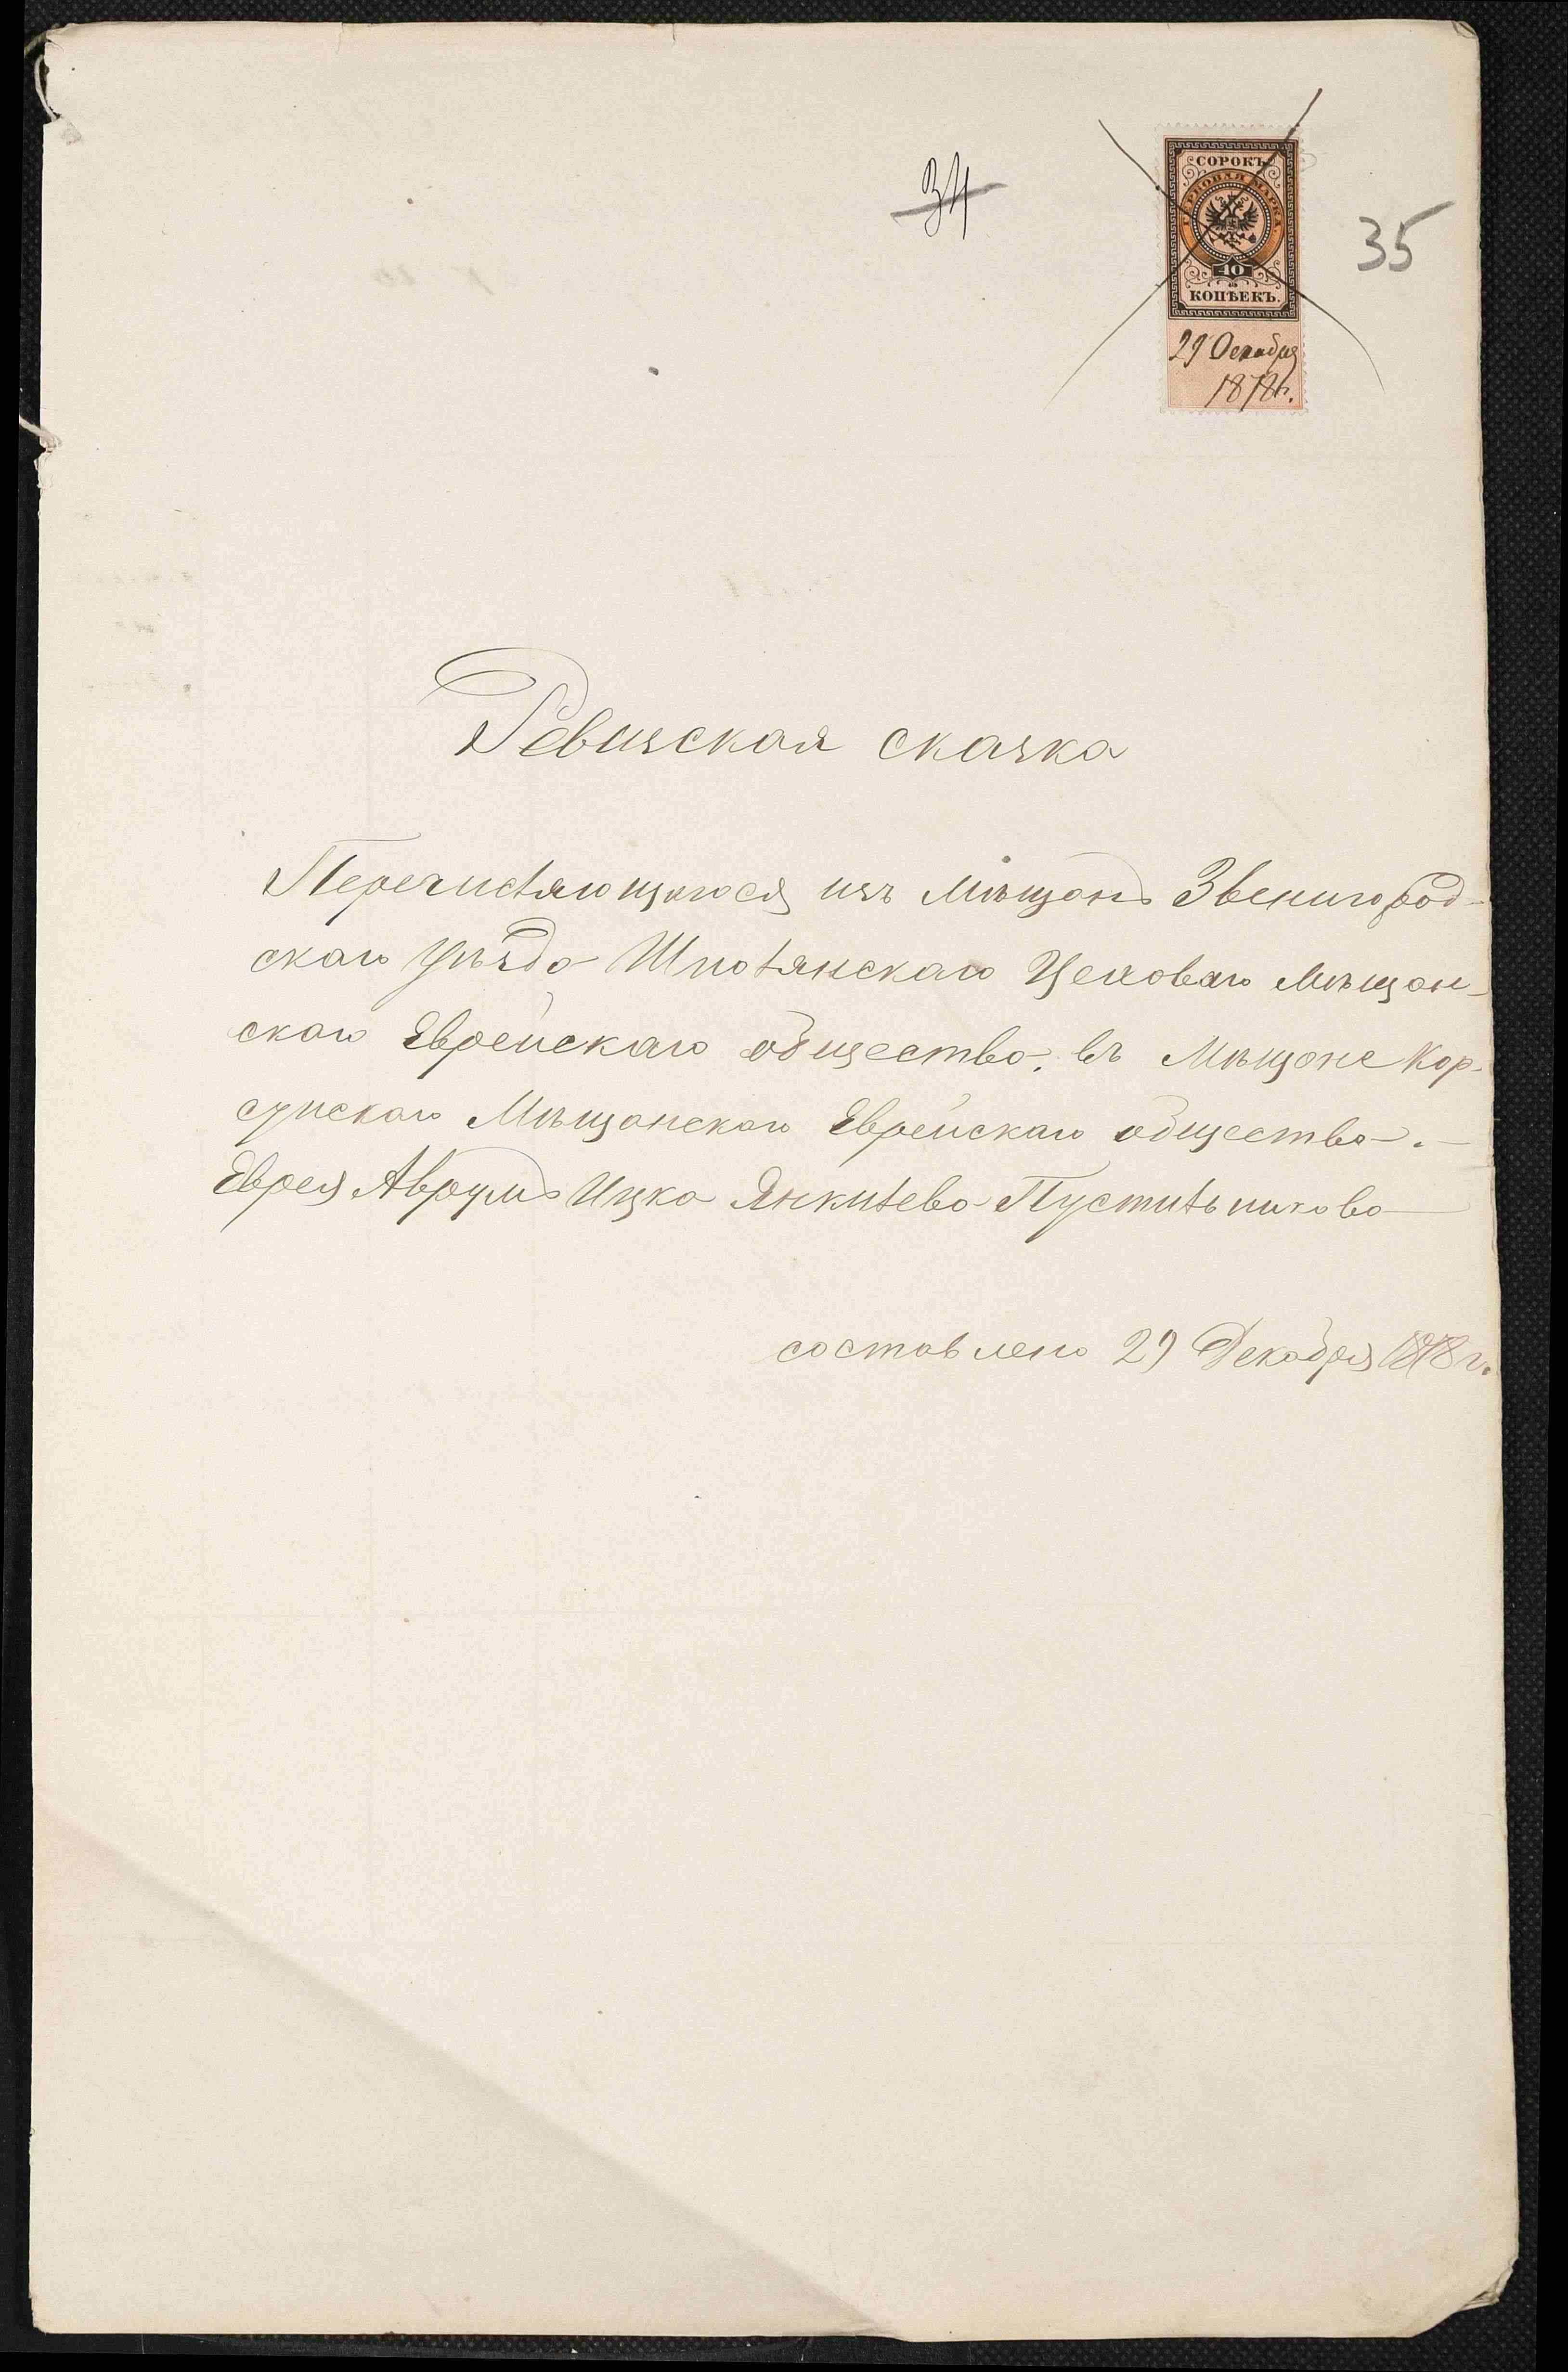 34
35
СОРОКЪ
ГЕРБОВАЯ МАРКА
40
КОПѢЕКЪ.
29 Декабря
1878 г.
Ревизская сказка
Перечисляющагося изъ Мѣщанъ Звенигород-
скаго уѣзда Шполянскаго Цеховаго Мѣщан-
скаго Еврейскаго общества, въ Мѣщане Кор-
сунскаго Мѣщанскаго Еврейскаго общества.
Еврея Аврумъ Ицка Янкилева Пустильникова
составлено 29 Декабря 1878 г.